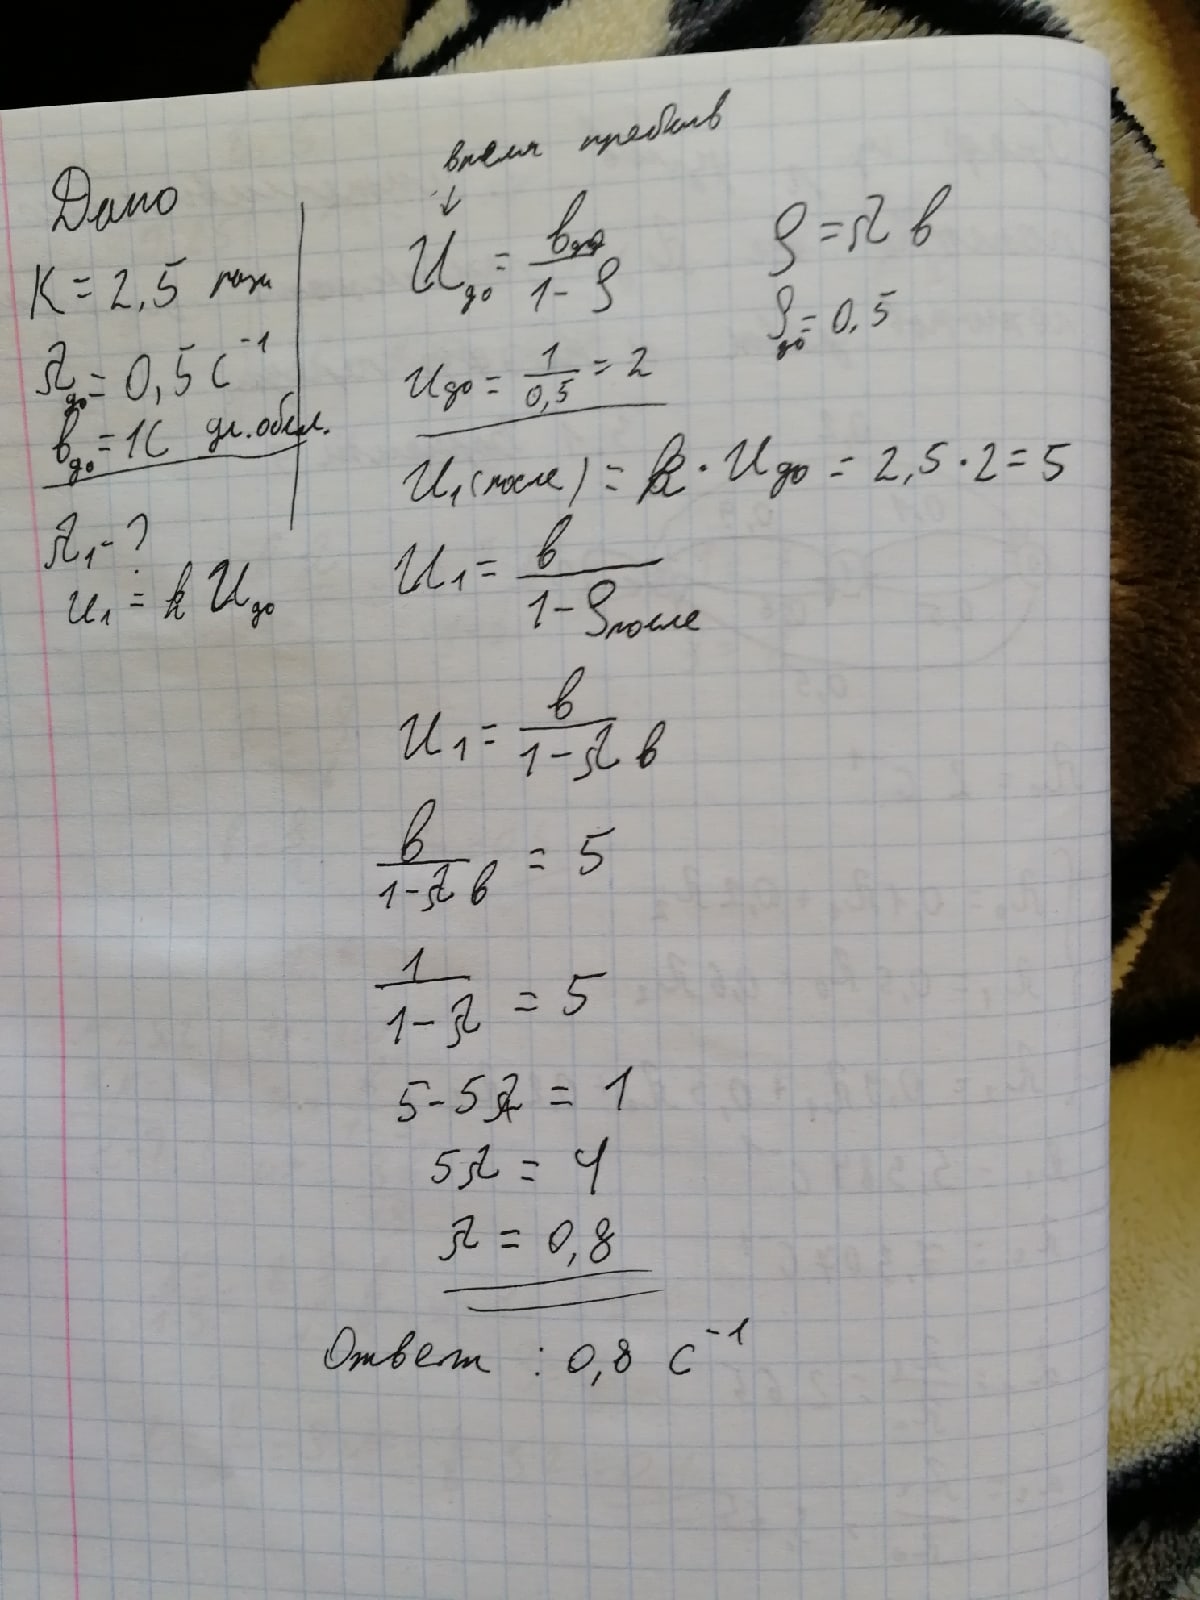 Дано
K = 2,5 раза
λдо = 0,5 c⁻¹
bдо = 1c дл. обсл.
λ1 - ?
u1 = k Uдо
время пребыв
↓
Uдо = bдо / (1 - ρ)
ρ = λ b
ρдо = 0,5
Uдо = 1 / 0,5 = 2
U1 (после) = k · Uдо = 2,5 · 2 = 5
U1 = b / (1 - ρпосле)
U1 = b / (1 - λ b)
b / (1 - λ b) = 5
1 / (1 - λ) = 5
5 - 5λ = 1
5λ = 4
λ = 0,8
Ответ : 0,8 c⁻¹